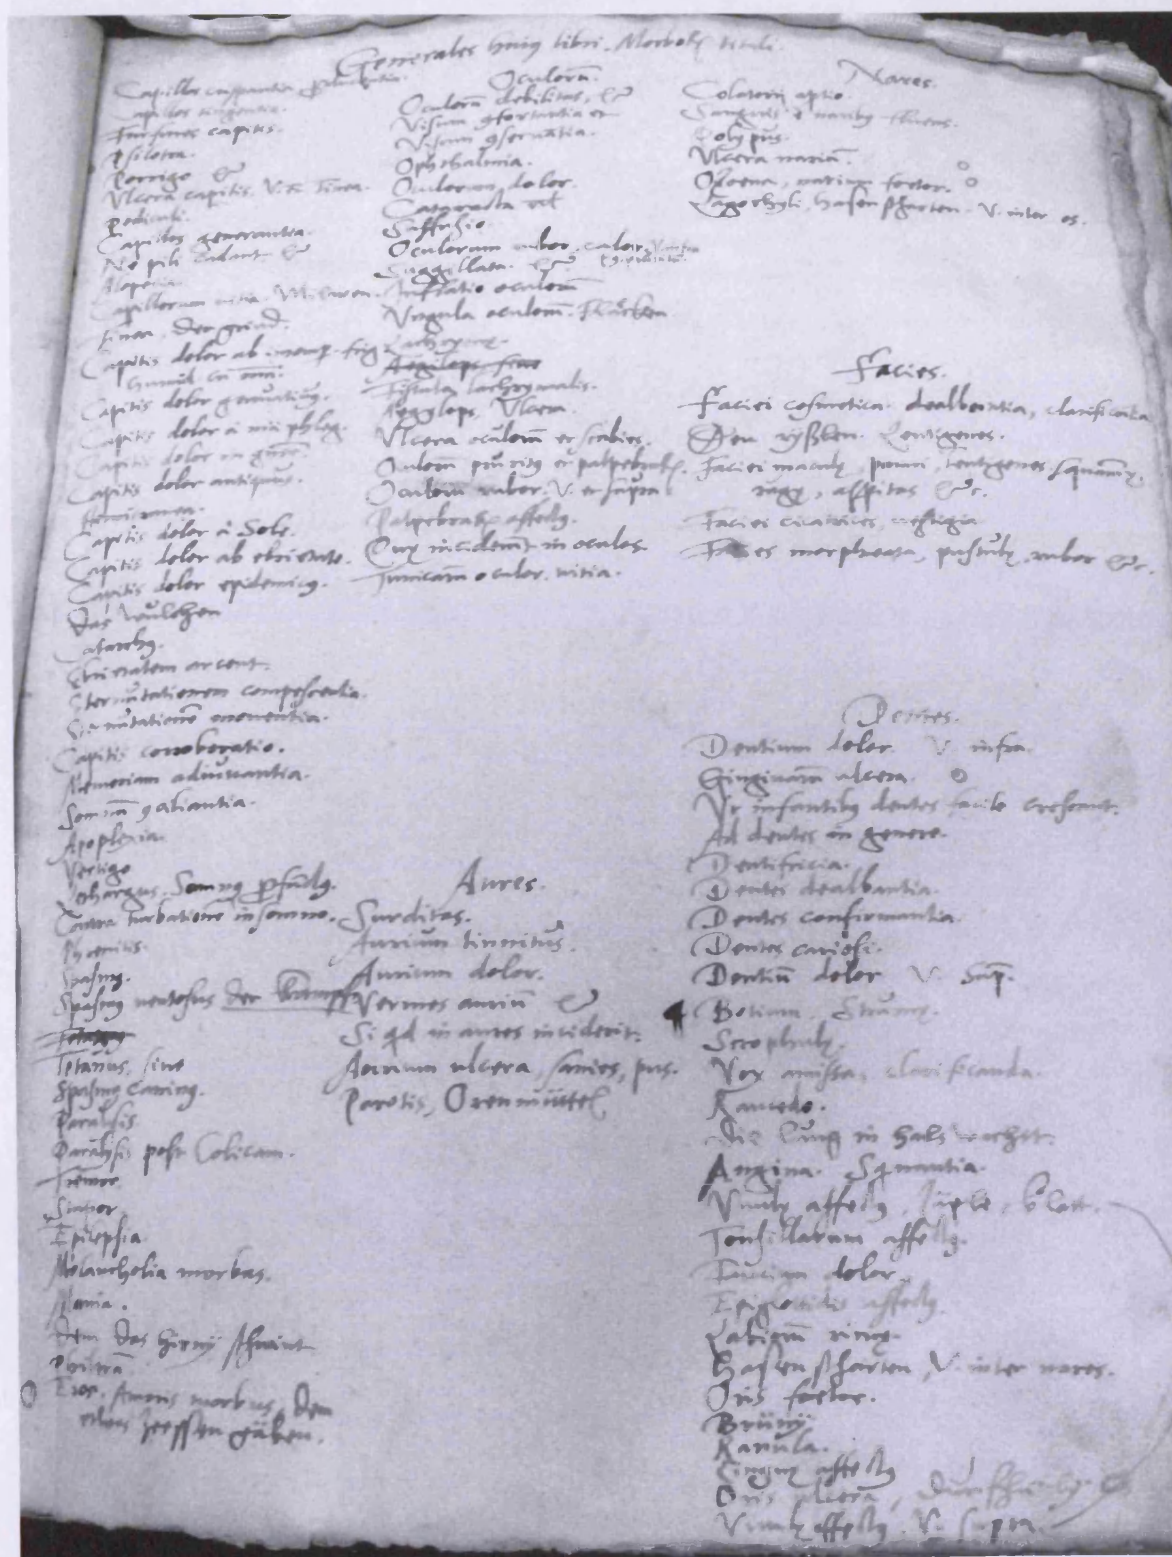 Generales huiꝰ libri. Morboꝝ tituli.
Capillos
Capillos tingentia.
Furfures capitis.
Psilotra.
Porrigo &
Vlcera capitis. V. Tinea.
Pediculi.
Capillos generantia.
Ne pili cadant &
Alopecia.
Capillorum vitia.
Tinea, der grind.
Capitis dolor ab
humid.
Capitis dolor
Capitis dolor à phleg.
Capitis dolor in
Capitis dolor antiquus.
Hemicranea.
Capitis dolor à Sole.
Capitis dolor ab ebrietate.
Capitis dolor epidemicꝰ.
Das
Catarrhꝰ.
Ebrietatem arcent.
Sternutationem compescentia.
Sternutationē mouentia.
Capitis corroboratio.
Memoriam adiuuantia.
Somnū ꝯciliantia.
Apoplexia.
Vertigo
Lethargus. Somnꝰ ꝓfundꝰ.
Contra turbationē in somno.
Phrenitis.
Spasmꝰ.
Spasmꝰ ventosus der Krampf
Tetanus, siue
Spasmꝰ Caninꝰ.
Paralysis.
Paralysis post Colicam.
Tremor.
Stupor.
Epilepsia.
Melancholia morbus.
Mania.
Dem das hirny
Philtra.
Eros. Amoris morbus, Dem
zeessen gäben.
Oculorū.
Oculorū debilitas, &
Visum ꝯfortantia et
Visum ꝯseruantia.
Ophthalmia.
Oculorum dolor.
Cataracta vel
Suffusio.
Oculorum rubor, calor,
Suggillata. &
Inflatio oculorū
Vngula oculorū. Fläcken
Lachrymę.
Aegilops siue
Fistula lachrymalis.
Aegylops, Vlcera.
Vlcera oculorū et scabies.
Oculorū pruritꝰ et palpebraꝝ.
Oculorū rubor. V. et supra
Palpebraꝝ affectꝰ.
Quę inciderūt in oculos
Tunicarū oculor. vitia.
Aures.
Surditas.
Aurium tinnitus.
Aurium dolor.
Vermes auriū &
Si qd in aures inciderit.
Aurium ulcera, sanies, pus.
Parotis, Orenmüttel
Nares.
Colatorii
Sanguis è naribꝰ fluens.
Polypus.
Vlcera nariū.
Ozoena, narium foetor.
Lagochyli, hasenscharten. V. inter os.
Facies.
Faciei cosmetica dealbantia, clarificantia
Lentigenes.
Faciei maculę, lentigenes, squamę,
rugę, &c.
Faciei cicatrices, vestigia
Facies morpheata, pustulę, rubor &c.
Dentes.
Dentium dolor. V. infra.
Gingiuarū ulcera.
Vt infantibꝰ dentes facile crescant.
Ad dentes in genere.
Dentifricia.
Dentes dealbantia.
Dentes confirmantia.
Dentes cariosi.
Dentiū dolor V. sup.
Botium. Strumę.
Scrophulę.
Vox amissa, clarificanda.
Raucedo.
die lung in hals
Angina. Sqinantia.
Vuulę affectꝰ,
Tonsillarum affectꝰ.
Faucium dolor.
Epiglottidis affectꝰ.
Labiorū rimę.
Hasenscharten, V. inter nares.
Oris foetor.
Brüny
Ranula.
Linguę affectꝰ
Oris ulcera,
Vuulę affectꝰ. V. supra.